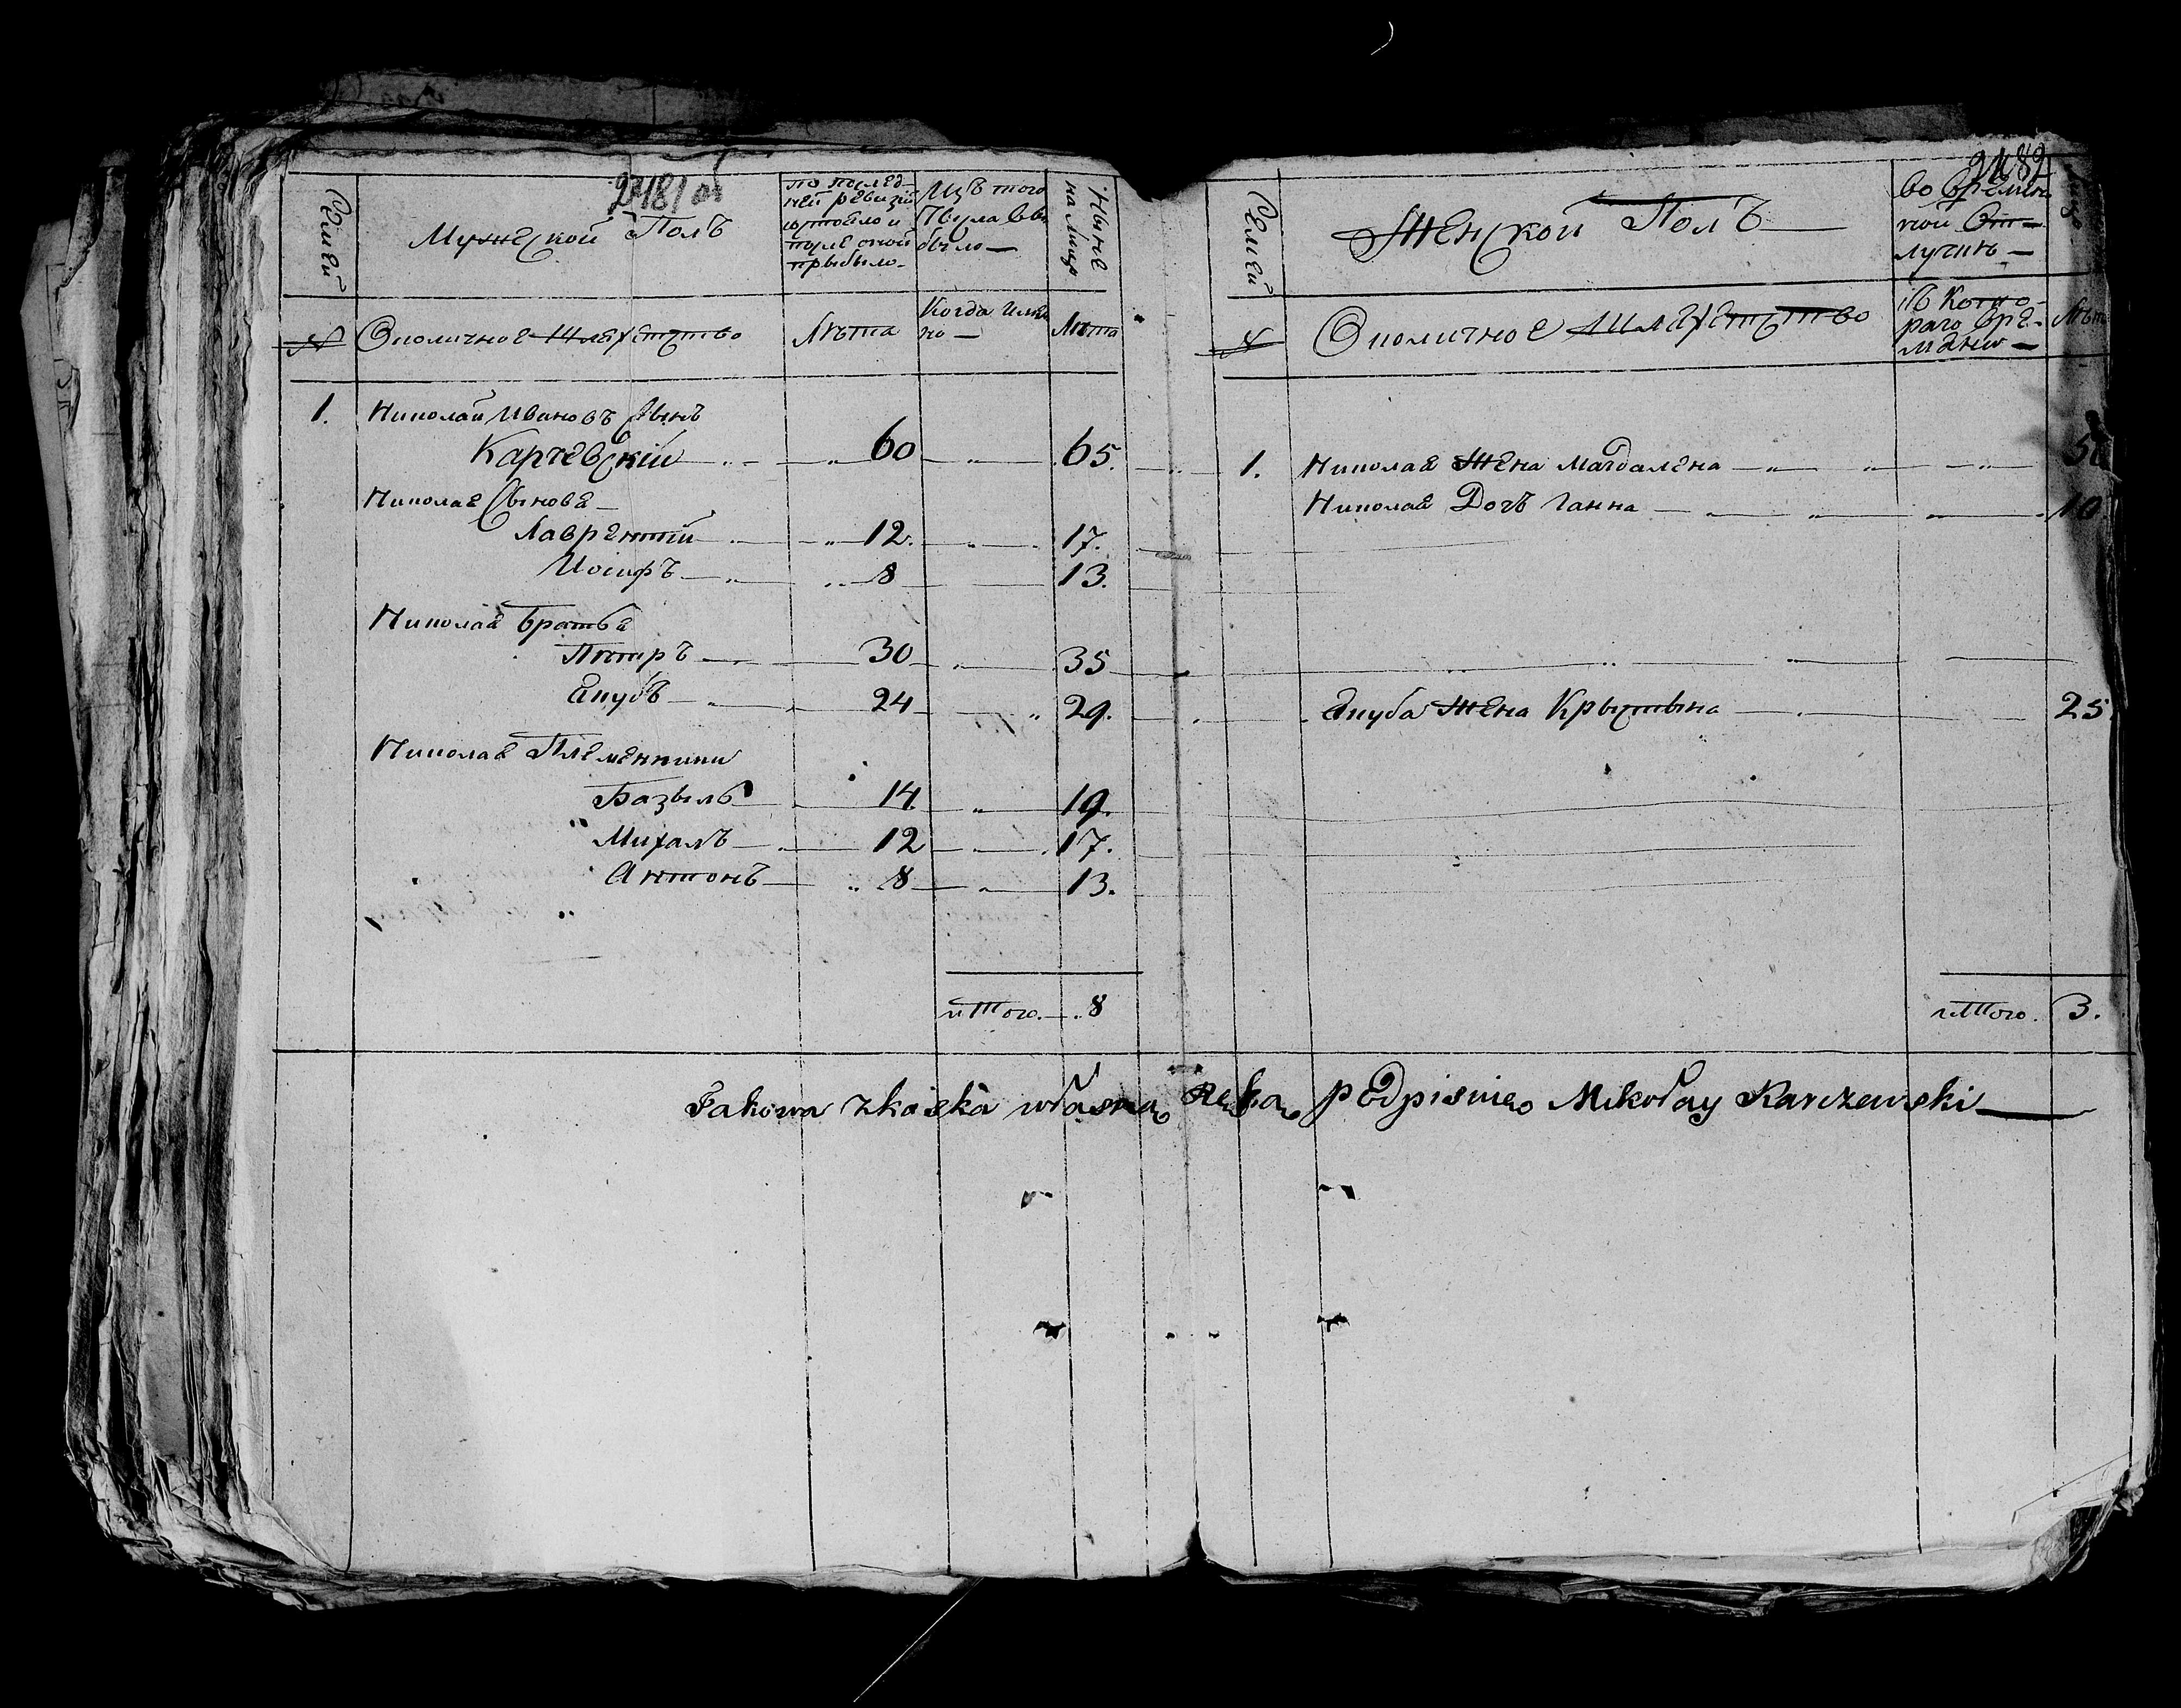 2481 об
Семей
Мужеской Полъ
по послед-
ней ревизіи
состояло и
после оной
прыбыло
Изъ того
числа вы
было
Ныне
на лицо
№
Околичное Шляхетство
Лѣта
Когда имен
но
Лѣта
1. Николай Ивановъ Сынъ
Карчевскій 60 65.
Николае Сынове
Лаврентій 12. 17.
Иосифъ 8 13.
Николае братья
Петръ 30 35
Якубъ 24 29.
Николае Племенники
Базыль 14 19.
Михалъ 12 17.
Антонъ 8 13.
итого 8
2482
Семей
Женской Полъ
во времен
ной От-
лучкѣ
№
Околичное Шляхетство
съ Кото-
раго вре-
мени
Лѣта
1. Николае Жена Магдалена
Николае Дочъ Ганна 10
Якуба Жена Крыстына 25
итого. 3.
Jakowa zkaska własną Ręką podpisuię Mikołay Karczewski